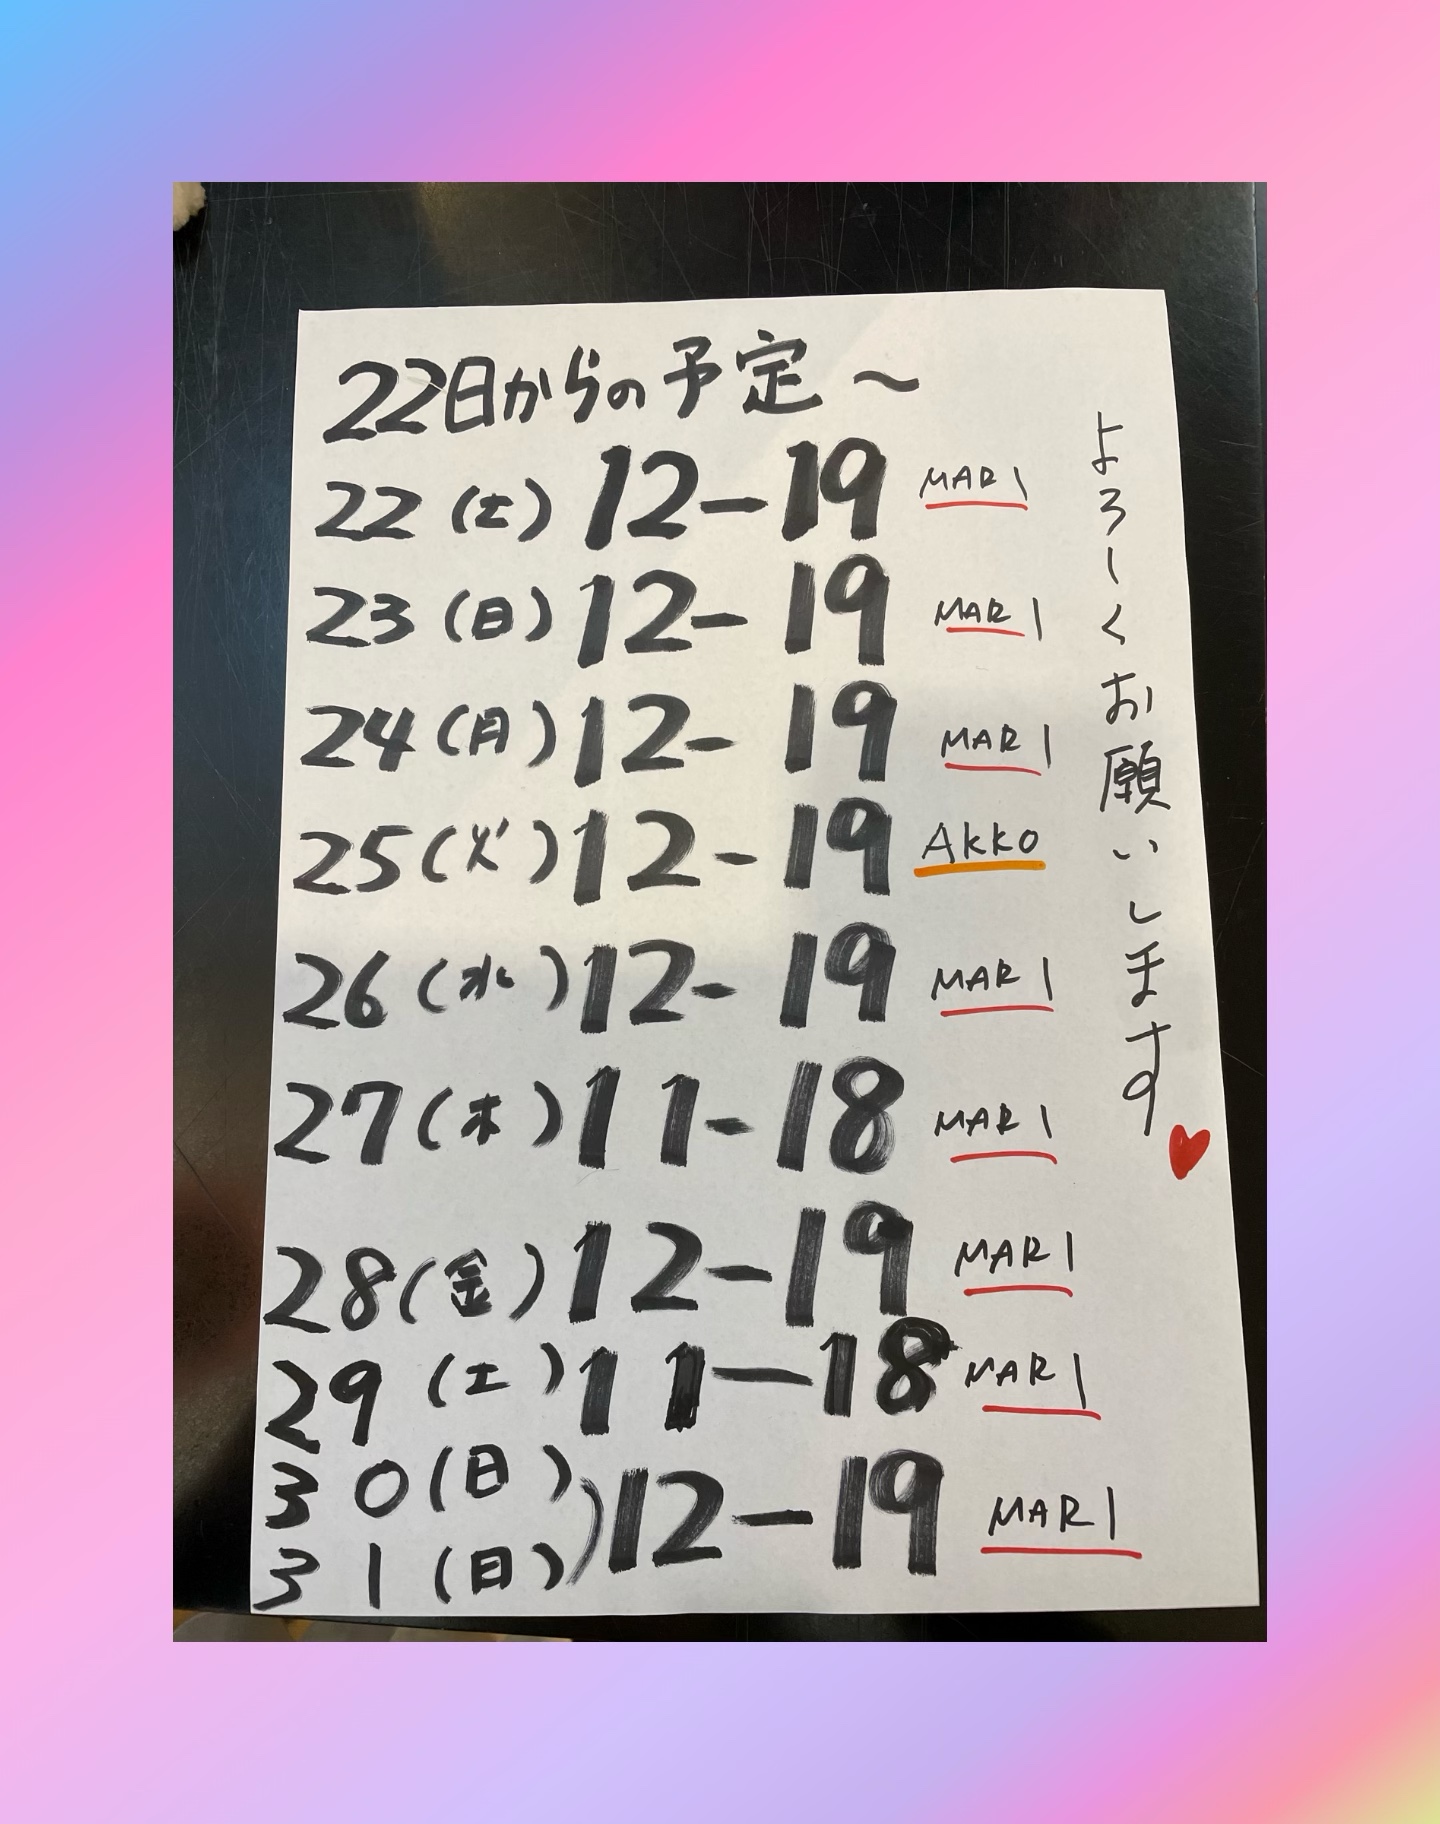 22日からの予定〜
22(土) 12-19 MARI
23(日) 12-19 MARI
24(月) 12-19 MARI
25(火) 12-19 AKKO
26(水) 12-19 MARI
27(木) 11-18 MARI
28(金) 12-19 MARI
29(土) 11-18 MARI
30(日)
31(日)) 12-19 MARI
よろしくお願いします♥